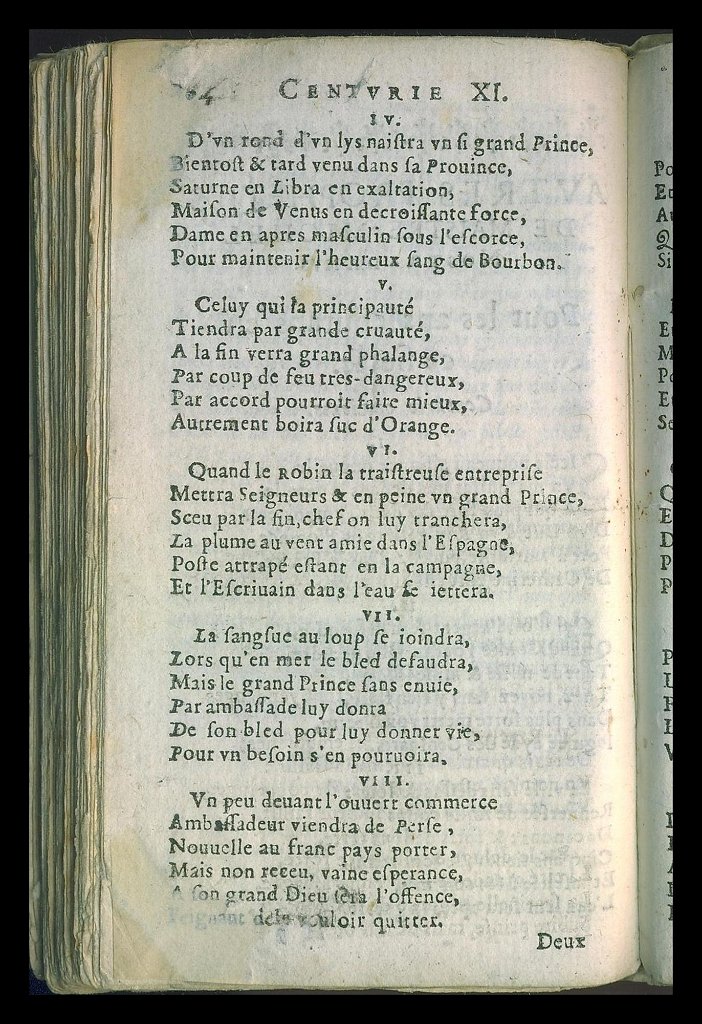 CENTVRIE XI.
IV.
D'vn rond d'vn lys naiſtra vn ſi grand Prince,
Bientoſt & tard venu dans ſa Prouince,
Saturne en Libra en exaltation,
Maiſon de Venus en decroiſſante force,
Dame en apres maſculin ſous l'eſcorce,
Pour maintenir l'heureux ſang de Bourbon.
V.
Celuy qui la principauté
Tiendra par grande cruauté,
A la fin verra grand phalange,
Par coup de feu tres-dangereux,
Par accord pourroit faire mieux,
Autrement boira ſuc d'Orange.
VI.
Quand le Robin la traiſtreuſe entrepriſe
Mettra Seigneurs & en peine vn grand Prince,
Sceu par la fin, chef on luy tranchera,
La plume au vent amie dans l'Eſpagne,
Poſte attrapé eſtant en la campagne,
Et l'Eſcriuain dans l'eau ſe iettera.
VII.
La ſangſue au loup ſe ioindra,
Lors qu'en mer le bled defaudra,
Mais le grand Prince ſans enuie,
Par ambaſſade luy donra
De ſon bled pour luy donner vie,
Pour vn beſoin s'en pouruoira.
VIII.
Vn peu deuant l'ouuert commerce
Ambaſſadeur viendra de Perſe,
Nouuelle au franc pays porter,
Mais non receu, vaine eſperance,
A ſon grand Dieu ſera l'offence,
Feignant de le vouloir quitter.
Deux